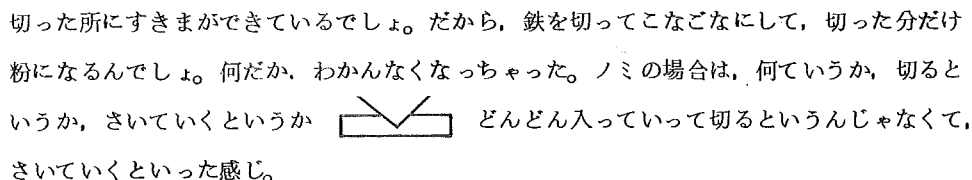 切った所にすきまができているでしょ。だから，鉄を切ってこなごなにして，切った分だけ
粉になるんでしょ。何だか，わかんなくなっちゃった。ノミの場合は，何ていうか，切ると
いうか，さいていくというか どんどん入っていって切るというんじゃなくて，
さいていくといった感じ。